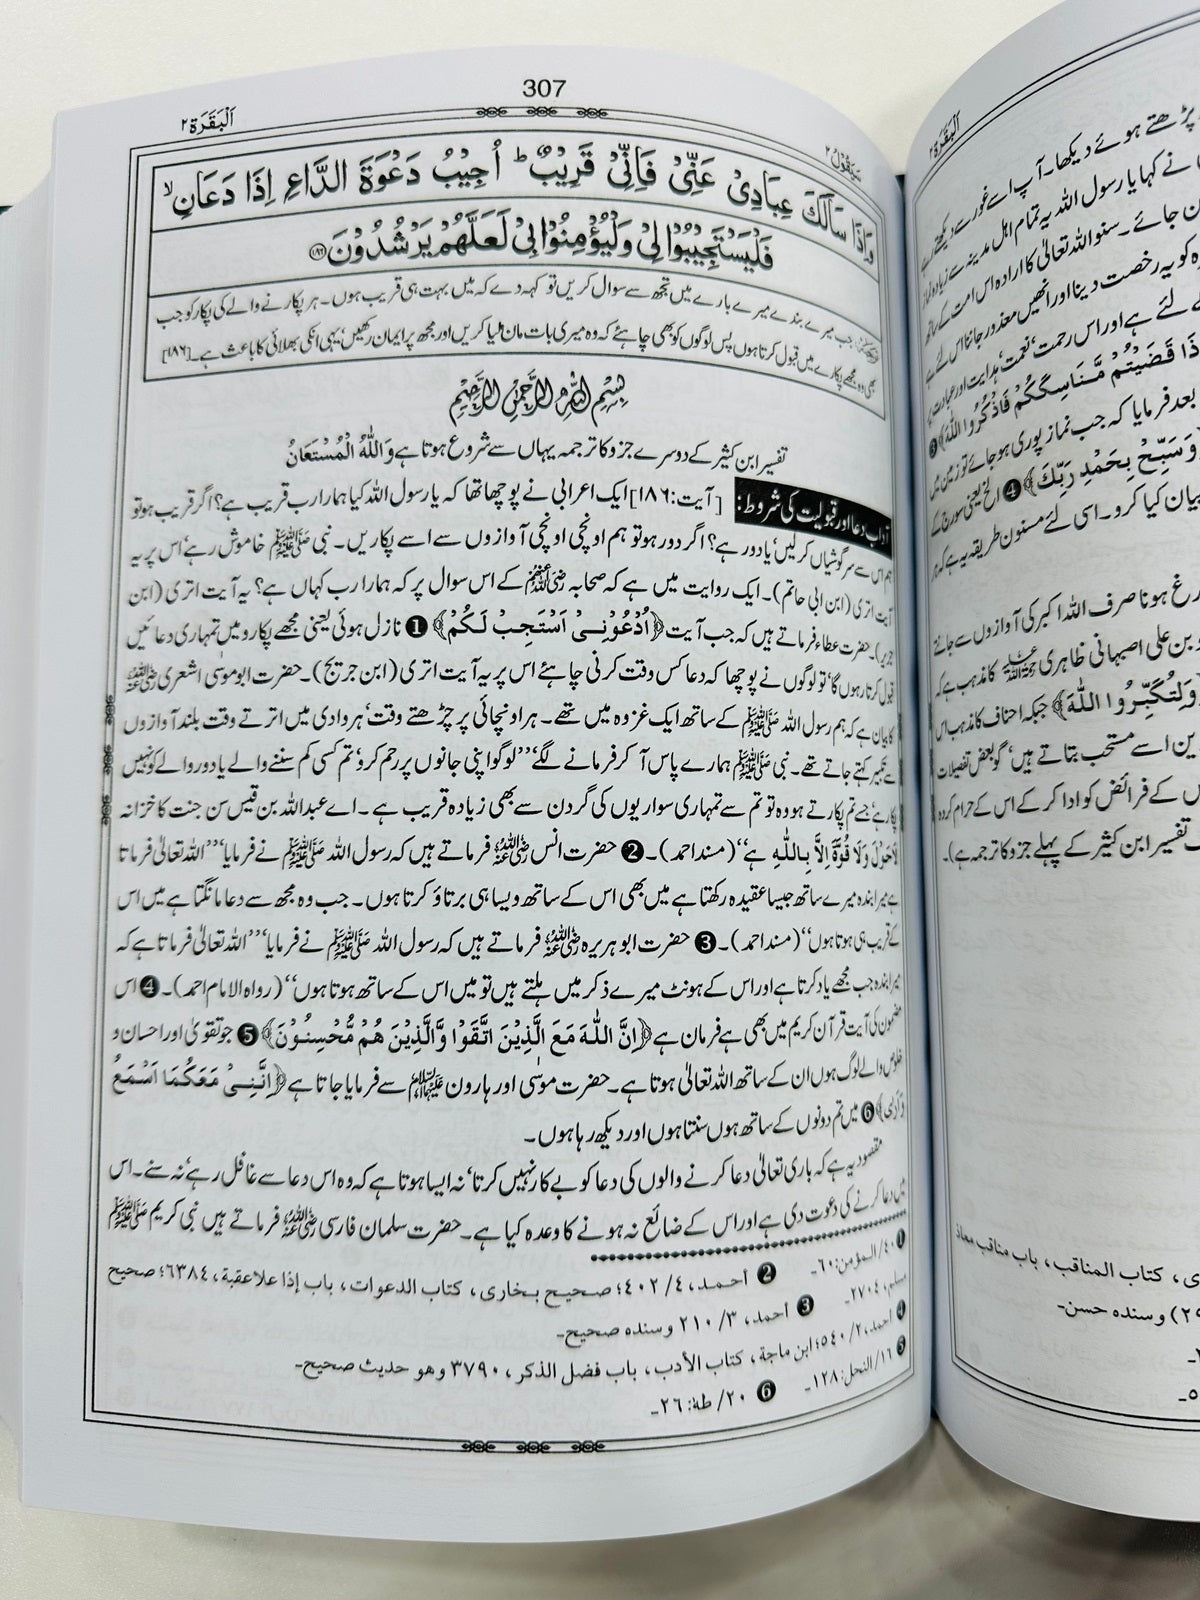 307
اَلْبَقَرَة ٢
سَيَقُوْلُ ٢
وَاِذَا سَاَلَكَ عِبَادِیْ عَنِّیْ فَاِنِّیْ قَرِیْبٌ ؕ اُجِیْبُ دَعْوَةَ الدَّاعِ اِذَا دَعَانِ ۙ
فَلْیَسْتَجِیْبُوْا لِیْ وَلْیُؤْمِنُوْا بِیْ لَعَلَّهُمْ یَرْشُدُوْنَ ﴿۱۸۶﴾
جب میرے بندے میرے بارے میں تجھ سے سوال کریں تو کہہ دے کہ میں بہت ہی قریب ہوں۔ ہر پکارنے والے کی پکار کو جب
بھی وہ مجھے پکارے میں قبول کرتا ہوں پس لوگوں کو بھی چاہئے کہ وہ میری بات مان لیا کریں اور مجھ پر ایمان رکھیں‘ یہی انکی بھلائی کا باعث ہے۔ [۱۸۶]
بسم الله الرحمن الرحيم
تفسیر ابن کثیر کے دوسرے جزو کا ترجمہ یہاں سے شروع ہوتا ہے وَاللهُ الْمُسْتَعَانُ
آداب دعا اور قبولیت کی شروط: [آیت:۱۸۶] ایک اعرابی نے پوچھا تھا کہ یا رسول اللہ کیا ہمارا رب قریب ہے؟ اگر قریب ہو تو
ہم اس سے سرگوشیاں کر لیں‘ یا دور ہے؟ اگر دور ہو تو ہم اونچی اونچی آوازوں سے اسے پکاریں۔ نبی ﷺ خاموش رہے‘ اس پر یہ
آیت اتری (ابن ابی حاتم)۔ ایک روایت میں ہے کہ صحابہ رضی اللہ عنہم کے اس سوال پر کہ ہمارا رب کہاں ہے؟ یہ آیت اتری (ابن
جریر)۔ حضرت عطاء فرماتے ہیں کہ جب آیت ﴿اُدْعُوْنِیْ اَسْتَجِبْ لَکُمْ﴾ ❶ نازل ہوئی یعنی مجھے پکارو میں تمہاری دعائیں
قبول کرتا رہوں گا‘ تو لوگوں نے پوچھا کہ دعا کس وقت کرنی چاہئے اس پر یہ آیت اتری (ابن جریج)۔ حضرت ابو موسیٰ اشعری رضی اللہ عنہ
کا بیان ہے کہ ہم رسول اللہ ﷺ کے ساتھ ایک غزوہ میں تھے۔ ہر اونچائی پر چڑھتے وقت‘ ہر وادی میں اترتے وقت بلند آوازوں
سے تکبیر کہتے جاتے تھے۔ نبی ﷺ ہمارے پاس آ کر فرمانے لگے‘ ’’لوگو اپنی جانوں پر رحم کرو‘ تم کسی کم سننے والے یا دور والے کو نہیں
پکار رہے‘ جسے تم پکارتے ہو وہ تو تم سے تمہاری سواریوں کی گردن سے بھی زیادہ قریب ہے۔ اے عبداللہ بن قیس سن جنت کا خزانہ
لَا حَوْلَ وَلَا قُوَّةَ اِلَّا بِاللّٰهِ ہے‘‘ (مسند احمد)۔ ❷ حضرت انس رضی اللہ عنہ فرماتے ہیں کہ رسول اللہ ﷺ نے فرمایا‘ ’’اللہ تعالیٰ فرماتا
ہے میرا بندہ میرے ساتھ جیسا عقیدہ رکھتا ہے میں بھی اس کے ساتھ ویسا ہی برتاؤ کرتا ہوں۔ جب وہ مجھ سے دعا مانگتا ہے میں اس
کے قریب ہی ہوتا ہوں‘‘ (مسند احمد)۔ ❸ حضرت ابو ہریرہ رضی اللہ عنہ فرماتے ہیں کہ رسول اللہ ﷺ نے فرمایا‘ ’’اللہ تعالیٰ فرماتا ہے کہ
میرا بندہ جب مجھے یاد کرتا ہے اور اس کے ہونٹ میرے ذکر میں ہلتے ہیں تو میں اس کے ساتھ ہوتا ہوں‘‘ (رواہ الامام احمد)۔ ❹ اس
مضمون کی آیت قرآن کریم میں بھی ہے فرمان ہے ﴿اِنَّ اللّٰهَ مَعَ الَّذِیْنَ اتَّقَوْا وَّالَّذِیْنَ هُمْ مُّحْسِنُوْنَ﴾ ❺ جو تقویٰ اور احسان و
خلوص والے لوگ ہوں ان کے ساتھ اللہ تعالیٰ ہوتا ہے۔ حضرت موسیٰ اور ہارون علیہما السلام سے فرمایا جاتا ہے ﴿اِنَّنِیْ مَعَکُمَا اَسْمَعُ
وَاَرٰی﴾ ❻ میں تم دونوں کے ساتھ ہوں سنتا ہوں اور دیکھ رہا ہوں۔
مقصود یہ ہے کہ باری تعالیٰ دعا کرنے والوں کی دعا کو بے کار نہیں کرتا‘ نہ ایسا ہوتا ہے کہ وہ اس دعا سے غافل رہے‘ نہ سنے۔ اس
میں دعا کرنے کی دعوت دی ہے اور اس کے ضائع نہ ہونے کا وعدہ کیا ہے۔ حضرت سلمان فارسی رضی اللہ عنہ فرماتے ہیں نبی کریم ﷺ
❶ ٤٠/ المؤمن: ٦٠۔ ❷ أحمد، ٤/ ٤٠٢؛ صحیح بخاری، کتاب الدعوات، باب إذا علا عقبة، ٦٣٨٤؛ صحیح
مسلم، ٢٧٠٤۔ ❸ أحمد، ٣/ ٢١٠ وسنده صحيح۔
❹ أحمد، ٢/ ٥٤٠؛ ابن ماجة، کتاب الأدب، باب فضل الذکر، ٣٧٩٠ وهو حديث صحيح۔
❺ ١٦/ النحل: ١٢٨۔ ❻ ٢٠/ طٰهٰ: ٢٦۔
اَلْبَقَرَة ٢
پڑھتے ہوئے دیکھا۔ آپ اسے غور سے دیکھتے رہے
نے کہا یا رسول اللہ یہ تمام اہل مدینہ سے زیادہ نماز
جائے۔ سنو اللہ تعالیٰ کا ارادہ اس امت کے ساتھ
کو یہ رخصت دینا اور انھیں معذور جاننا اس لئے
کے لئے ہے اور اس رحمت‘ نعمت‘ ہدایت اور عبادت پر
قَضَيْتُمْ مَّنَاسِكَكُمْ فَاذْكُرُوا اللّٰهَ﴾ ❸
بعد فرمایا کہ جب نماز پوری ہو جائے تو زمین میں
﴿وَسَبِّحْ بِحَمْدِ رَبِّكَ﴾ ❹ الخ یعنی سورج کے
بیان کیا کرو۔ اسی لئے مسنون طریقہ یہ ہے کہ ہر
فارغ ہونا صرف اللہ اکبر کی آوازوں سے جانتے
بن علی اصبہانی ظاہری رحمہ اللہ کا مذہب ہے کہ
﴿وَلِتُكَبِّرُوا اللّٰهَ﴾ جبکہ احناف کا مذہب اس
اسے مستحب بتاتے ہیں‘ گو بعض تفصیلات
کے فرائض کو ادا کر کے اس کے حرام کردہ
تفسیر ابن کثیر کے پہلے جزو کا ترجمہ ہے)۔
کتاب المناقب، باب مناقب معاذ
وسنده حسن۔